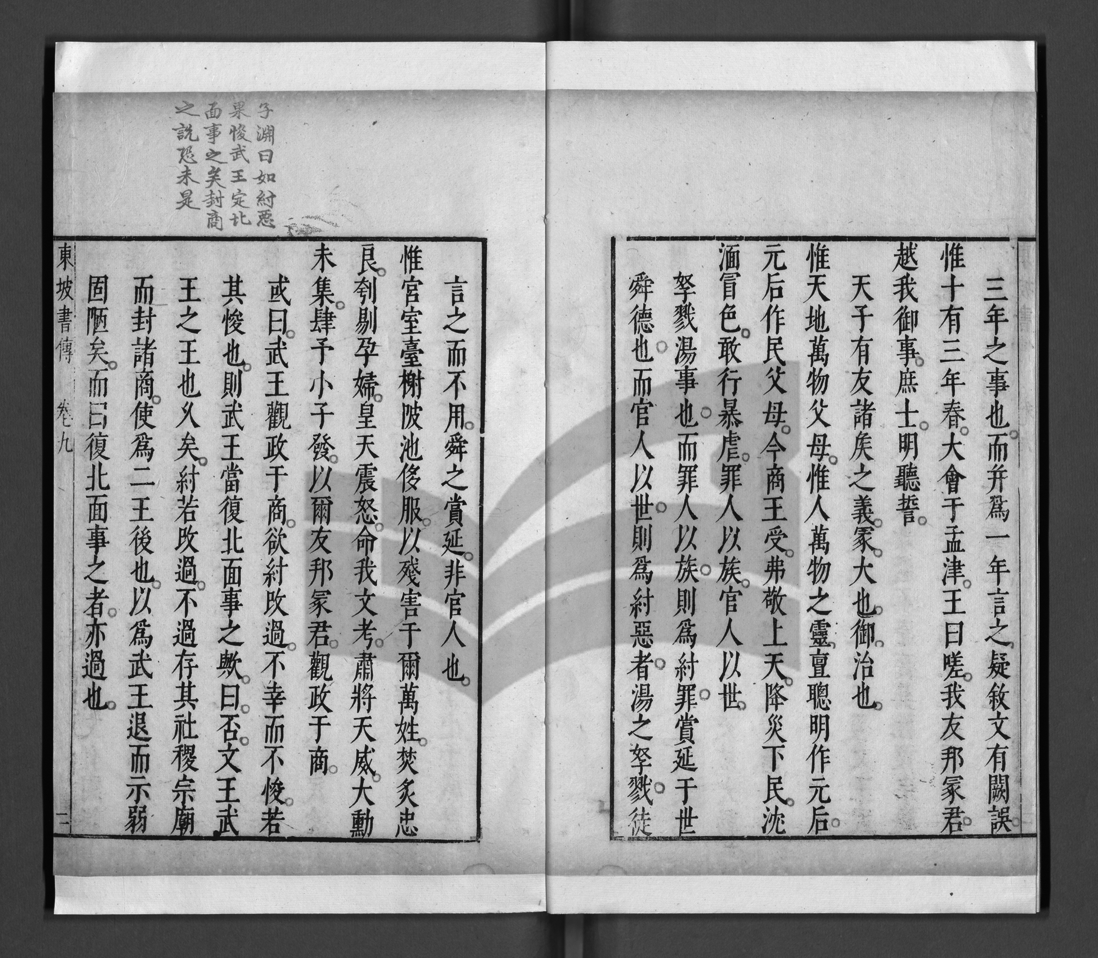 三年之事也而并爲一年言之疑敘文有闕誤
惟十有三年春大會于孟津王曰嗟我友邦冢君
越我御事庶士明聽誓
天子有友諸矦之義冢大也御治也
惟天地萬物父母惟人萬物之靈亶聰明作元后
元后作民父母今商王受弗敬上天降災下民沈
湎冒色敢行暴虐罪人以族官人以世
孥戮湯事也而罪人以族則爲紂罪賞延于世
舜德也而官人以世則爲紂惡者湯之孥戮徒
言之而不用舜之賞延非官人也
惟宮室臺榭陂池侈服以殘害于爾萬姓焚炙忠
良刳剔孕婦皇天震怒命我文考肅將天威大勳
未集肆予小子發以爾友邦冢君觀政于商
或曰武王觀政于商欲紂改過不幸而不悛若
其悛也則武王當復北面事之歟曰否文王武
王之王也久矣紂若改過不過存其社稷宗廟
而封諸商使爲二王後也以爲武王退而示弱
固陋矣而曰復北面事之者亦過也
東坡書傳 卷九 二
子淵曰如紂惡
果悛武王定北
面事之矣封商
之說恐未是